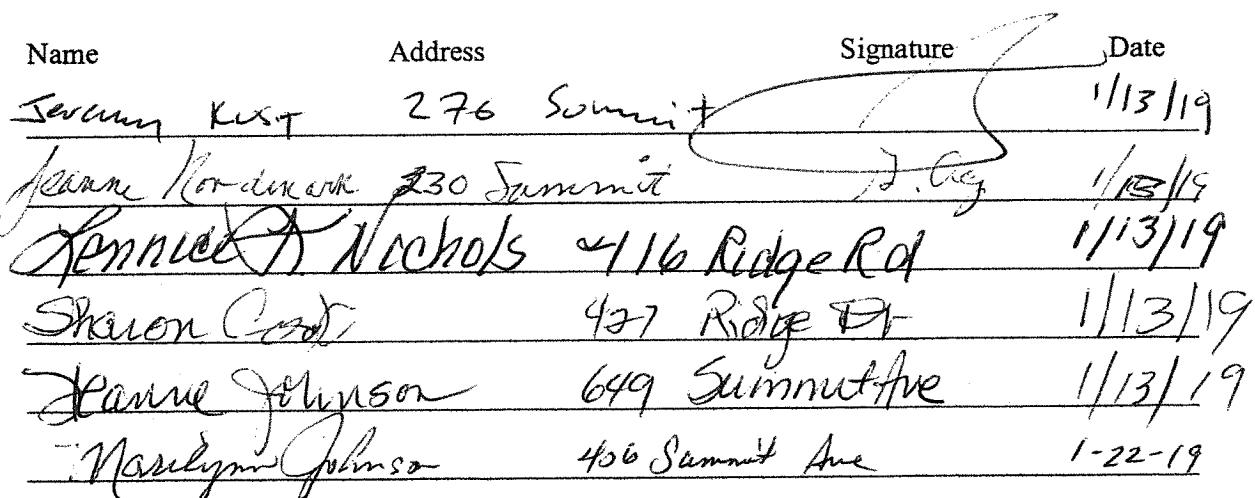 Name Address Signature Date
Jeremy Kust 276 Summit 1/13/19
Jeanne Nordmark 230 Summit 1/13/19
Nichols 416 Ridge Rd 1/13/19
Sharon 427 Ridge Dr 1/13/19
Jeanne Johnson 649 Summit Ave 1/13/19
Marilynn Johnson 406 Summit Ave 1-22-19